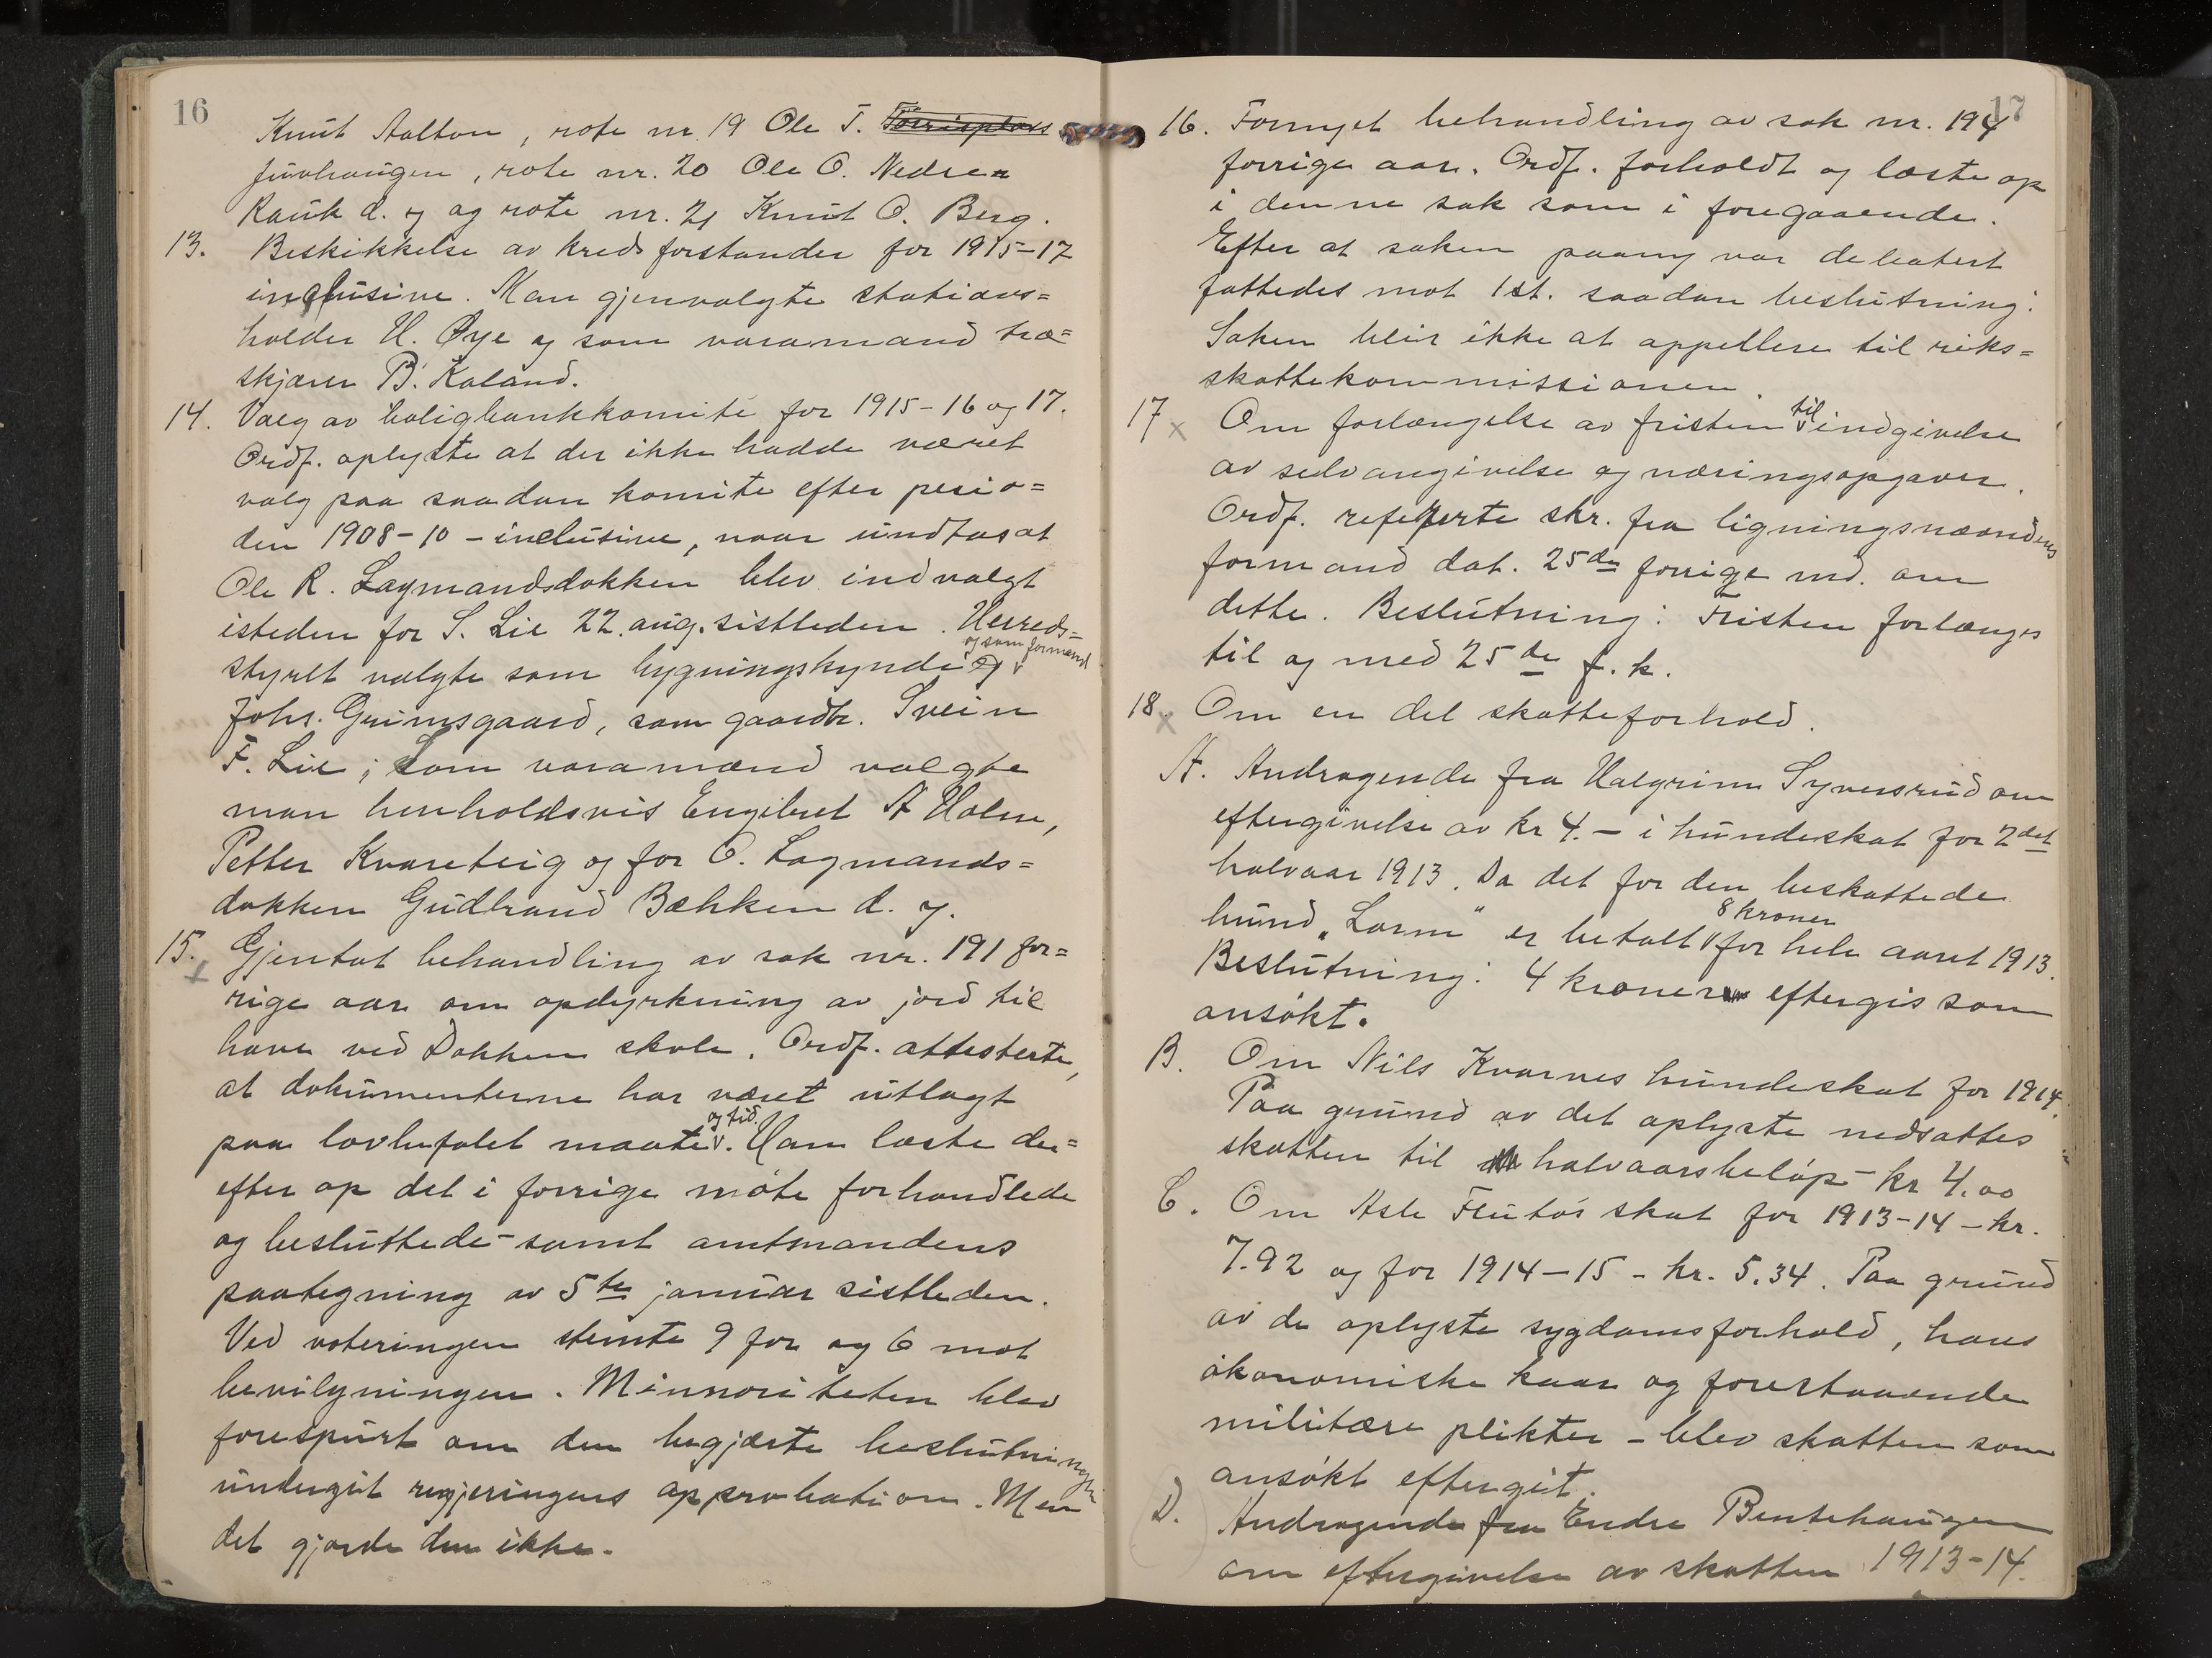 16
Knut Aalton, rote nr. 19 Ole T.
Juvhaugen, rote nr. 20 Ole O. Nedre-
Rauk d. y og rote nr. 21 Knut O. Berg.
13. Beskikkelse av kredsforstander for 1915-17
inclusive. Man gjenvalgte stations=
holder H. Øye og som varamand træ=
skjærer B. Kaland.
14. Valg av boligbankkomite for 1915-16 og 17.
Ordf. oplyste at der ikke hadde været
valg paa saadan komite efter perio=
den 1908-10 - inclusive, naar undtas at
Ole R. Lagmandsdokken blev indvalgt
isteden for S. Lie 22. aug. sistleden. Herreds=
og som formand
styret valgte som bygningskyndig
Johs. Grimsgaard, som gaardbr. Svein
T. Lie; som varamænd valgte
man henholdsvis Engebret A Holm,
Petter Kvareteig og for O. Lagmands=
dokken Gudbrand Bækken d. y.
15. Gjentat behandling av sak nr. 191 for=
rige aar om opdyrkning av jord til
have ved Dokken skole. Ordf. attesterte,
at dokumenterne har været utlagt
og tid
paa lovbefalet maate. Han læste der=
efter op det i forrige møte forhandlede
og besluttede - samt amtmandens
paategning av 5te januar sistleden.
Ved voteringen stemte 9 for og 6 mot
bevilgningen. Minnoriteten blev
forespurt om den begjærte beslutningen
undergit regjeringens approbation. Men
det gjorde den ikke.
17
16. Fornyet behandling av sak nr. 194
forrige aar. Ordf. forholdt og læste op
i denne sak som i foregaaende.
Efter at saken paany var debatert
fattedes mot 1 st. saadan beslutning:
Saken blir ikke at appellere til riks=
skattekommissionen.
til
17 x Om forlængelse av fristen indgivelse
av selvangivelse og næringsopgaver.
Ordf. refererte skr. fra ligningsnævndens
formand dat. 25de forrige md. om
dette. Beslutning: Fristen forlænges
til og med 25de f. k.
18. x Om en del skatteforhold.
A. Andragende fra Halgrim Syversrud om
eftergivelse av kr 4.- i hundeskat for 2det
halvaar 1913. Da det for den beskattede
8 kroner
hund "Lorm" er betalt for hele aaret 1913.
Beslutning: 4 kroner eftergis som
ansøkt.
B. Om Nils Kvarnes hundeskat for 1914.
Paa grund av det oplyste nedsattes
skatten til halvaarsbeløp - kr 4.00
C. Om Asle Flutøs skat for 1913-14 - kr.
7.92 og for 1914-15 - kr. 5.34. Paa grund
av de oplyste sygdomsforhold, hans
økonomiske kaar og forestaaende
militære plikter - blev skatten som
ansøkt eftergit.
D. Andragende fra Endre Bentehaugen
om eftergivelse av skatten 1913-14.